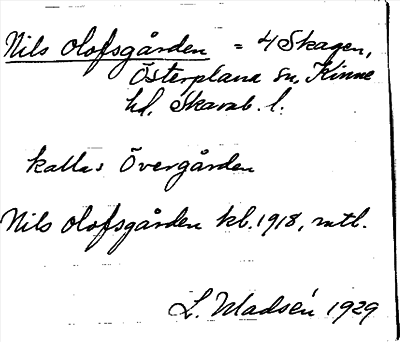 Nils Olofsgården = 4 Skagen,
Österplana sn, Kinne
hd, Skarab. l.
kallas Övergården
Nils Olofsgården kb. 1918, mtl.
L. Madsén 1929